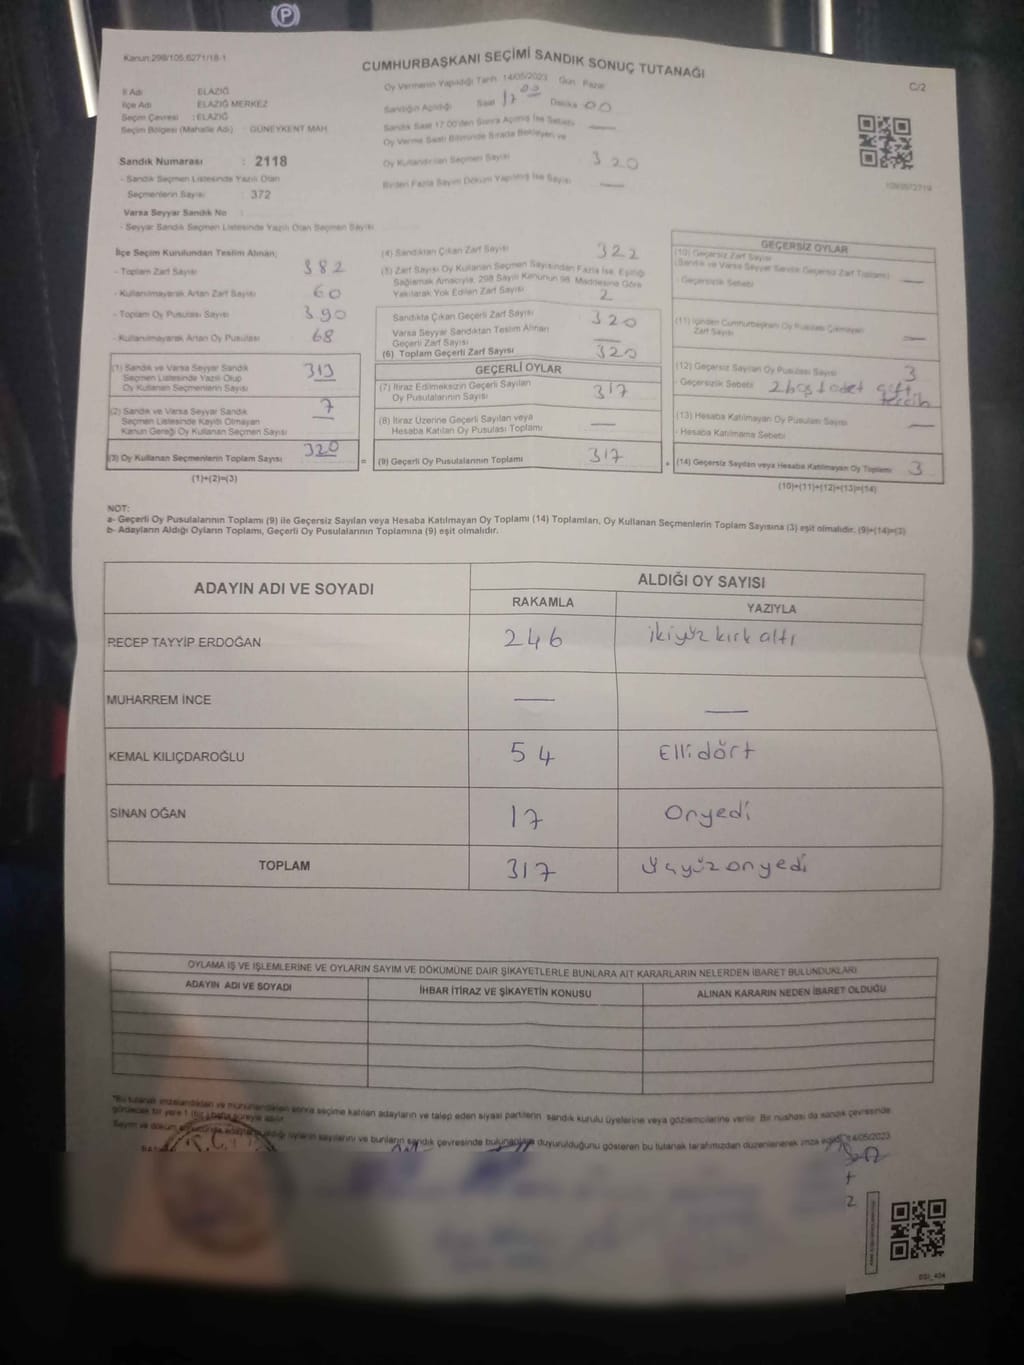 P
Kanun:298/105.6271/18-1
CUMHURBAŞKANI SEÇİMİ SANDIK SONUÇ TUTANAĞI
C/2
İl Adı ELAZIĞ
İlçe Adı ELAZIĞ MERKEZ
Seçim Çevresi : ELAZIĞ
Seçim Bölgesi (Mahalle Adı) : GÜNEYKENT MAH.
Oy Vermenin Yapıldığı Tarih 14/05/2023 Gün Pazar
Sandığın Açıldığı Saat 17 00 Dakika 00
Sandık Saat 17:00'den Sonra Açılmış İse Sebebi —
Oy Verme Saati Bitiminde Sırada Bekleyen ve
Oy Kullandırılan Seçmen Sayısı 320
Birden Fazla Sayım Döküm Yapılmış İse Sayısı —
Sandık Numarası : 2118
- Sandık Seçmen Listesinde Yazılı Olan
Seçmenlerin Sayısı : 372
Varsa Seyyar Sandık No :
- Seyyar Sandık Seçmen Listesinde Yazılı Olan Seçmen Sayısı
İlçe Seçim Kurulundan Teslim Alınan;
- Toplam Zarf Sayısı 382
- Kullanılmayarak Artan Zarf Sayısı 60
- Toplam Oy Pusulası Sayısı 390
- Kullanılmayarak Artan Oy Pusulası 68
(1) Sandık ve Varsa Seyyar Sandık
Seçmen Listesinde Yazılı Olup
Oy Kullanan Seçmenlerin Sayısı 313
(2) Sandık ve Varsa Seyyar Sandık
Seçmen Listesinde Kayıtlı Olmayan
Kanun Gereği Oy Kullanan Seçmen Sayısı 7
(3) Oy Kullanan Seçmenlerin Toplam Sayısı 320
(1)+(2)=(3)
(4) Sandıktan Çıkan Zarf Sayısı 322
(5) Zarf Sayısı Oy Kullanan Seçmen Sayısından Fazla İse, Eşitliği
Sağlamak Amacıyla, 298 Sayılı Kanunun 98. Maddesine Göre
Yakılarak Yok Edilen Zarf Sayısı 2
Sandıkta Çıkan Geçerli Zarf Sayısı 320
Varsa Seyyar Sandıktan Teslim Alınan
Geçerli Zarf Sayısı —
(6) Toplam Geçerli Zarf Sayısı 320
GEÇERLİ OYLAR
(7) İtiraz Edilmeksizin Geçerli Sayılan
Oy Pusulalarının Sayısı 317
(8) İtiraz Üzerine Geçerli Sayılan veya
Hesaba Katılan Oy Pusulası Toplamı —
= (9) Geçerli Oy Pusulalarının Toplamı 317
GEÇERSİZ OYLAR
(10) Geçersiz Zarf Sayısı
(Sandık ve Varsa Seyyar Sandık Geçersiz Zarf Toplamı)
- Geçersizlik Sebebi —
(11) İçinden Cumhurbaşkanı Oy Pusulası Çıkmayan
Zarf Sayısı —
(12) Geçersiz Sayılan Oy Pusulası Sayısı 3
- Geçersizlik Sebebi 2 boş 1 adet çift
tercih
(13) Hesaba Katılmayan Oy Pusulası Sayısı —
- Hesaba Katılmama Sebebi
+ (14) Geçersiz Sayılan veya Hesaba Katılmayan Oy Toplamı 3
(10)+(11)+(12)+(13)=(14)
NOT:
a- Geçerli Oy Pusulalarının Toplamı (9) ile Geçersiz Sayılan veya Hesaba Katılmayan Oy Toplamı (14) Toplamları, Oy Kullanan Seçmenlerin Toplam Sayısına (3) eşit olmalıdır. (9)+(14)=(3)
b- Adayların Aldığı Oyların Toplamı, Geçerli Oy Pusulalarının Toplamına (9) eşit olmalıdır.
ADAYIN ADI VE SOYADI
ALDIĞI OY SAYISI
RAKAMLA YAZIYLA
RECEP TAYYİP ERDOĞAN 246 ikiyüz kırk altı
MUHARREM İNCE — —
KEMAL KILIÇDAROĞLU 54 Ellidört
SİNAN OĞAN 17 Onyedi
TOPLAM 317 Üçyüzonyedi
OYLAMA İŞ VE İŞLEMLERİNE VE OYLARIN SAYIM VE DÖKÜMÜNE DAİR ŞİKAYETLERLE BUNLARA AİT KARARLARIN NELERDEN İBARET BULUNDUKLARI
ADAYIN ADI VE SOYADI İHBAR İTİRAZ VE ŞİKAYETİN KONUSU ALINAN KARARIN NEDEN İBARET OLDUĞU
*Bu tutanak imzalandıktan ve mühürlendikten sonra seçime katılan adayların ve talep eden siyasi partilerin sandık kurulu üyelerine veya gözlemcilerine verilir. Bir nüshası da sandık çevresinde
görülecek bir yere 1 (bir) hafta süreyle asılır.
aldığı oyların sayılarını ve bunların sandık çevresinde bulunanlara duyurulduğunu gösteren bu tutanak tarafımızdan düzenlenerek imza edildi. 14/05/2023